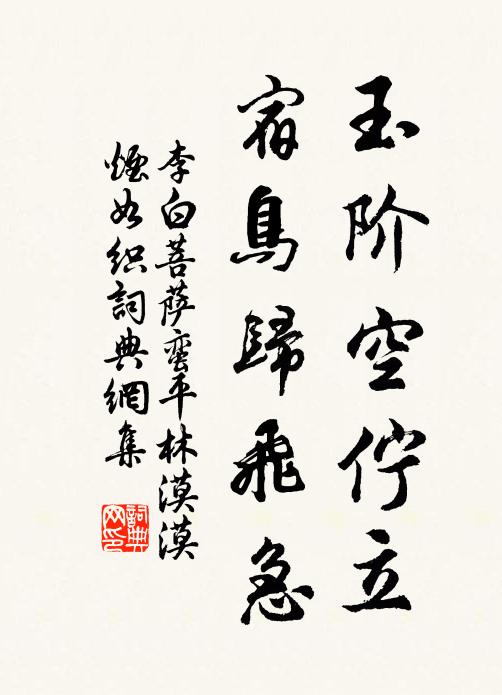 玉阶空伫立
宿鳥歸飛急
李白菩萨蛮平林漠漠
煙如织詞典網集
詞典网印